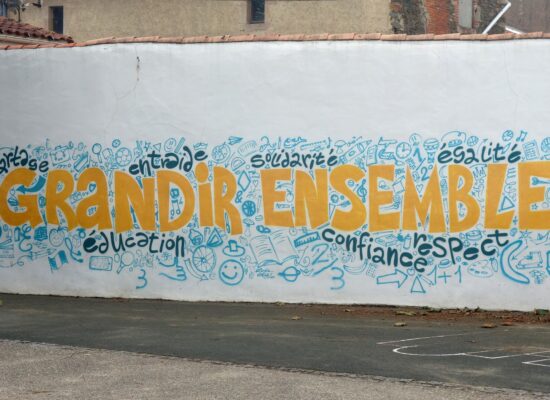 artage entraide solidarité égalité
GRANDIR ENSEMBLE
éducation confiance respect
1+1